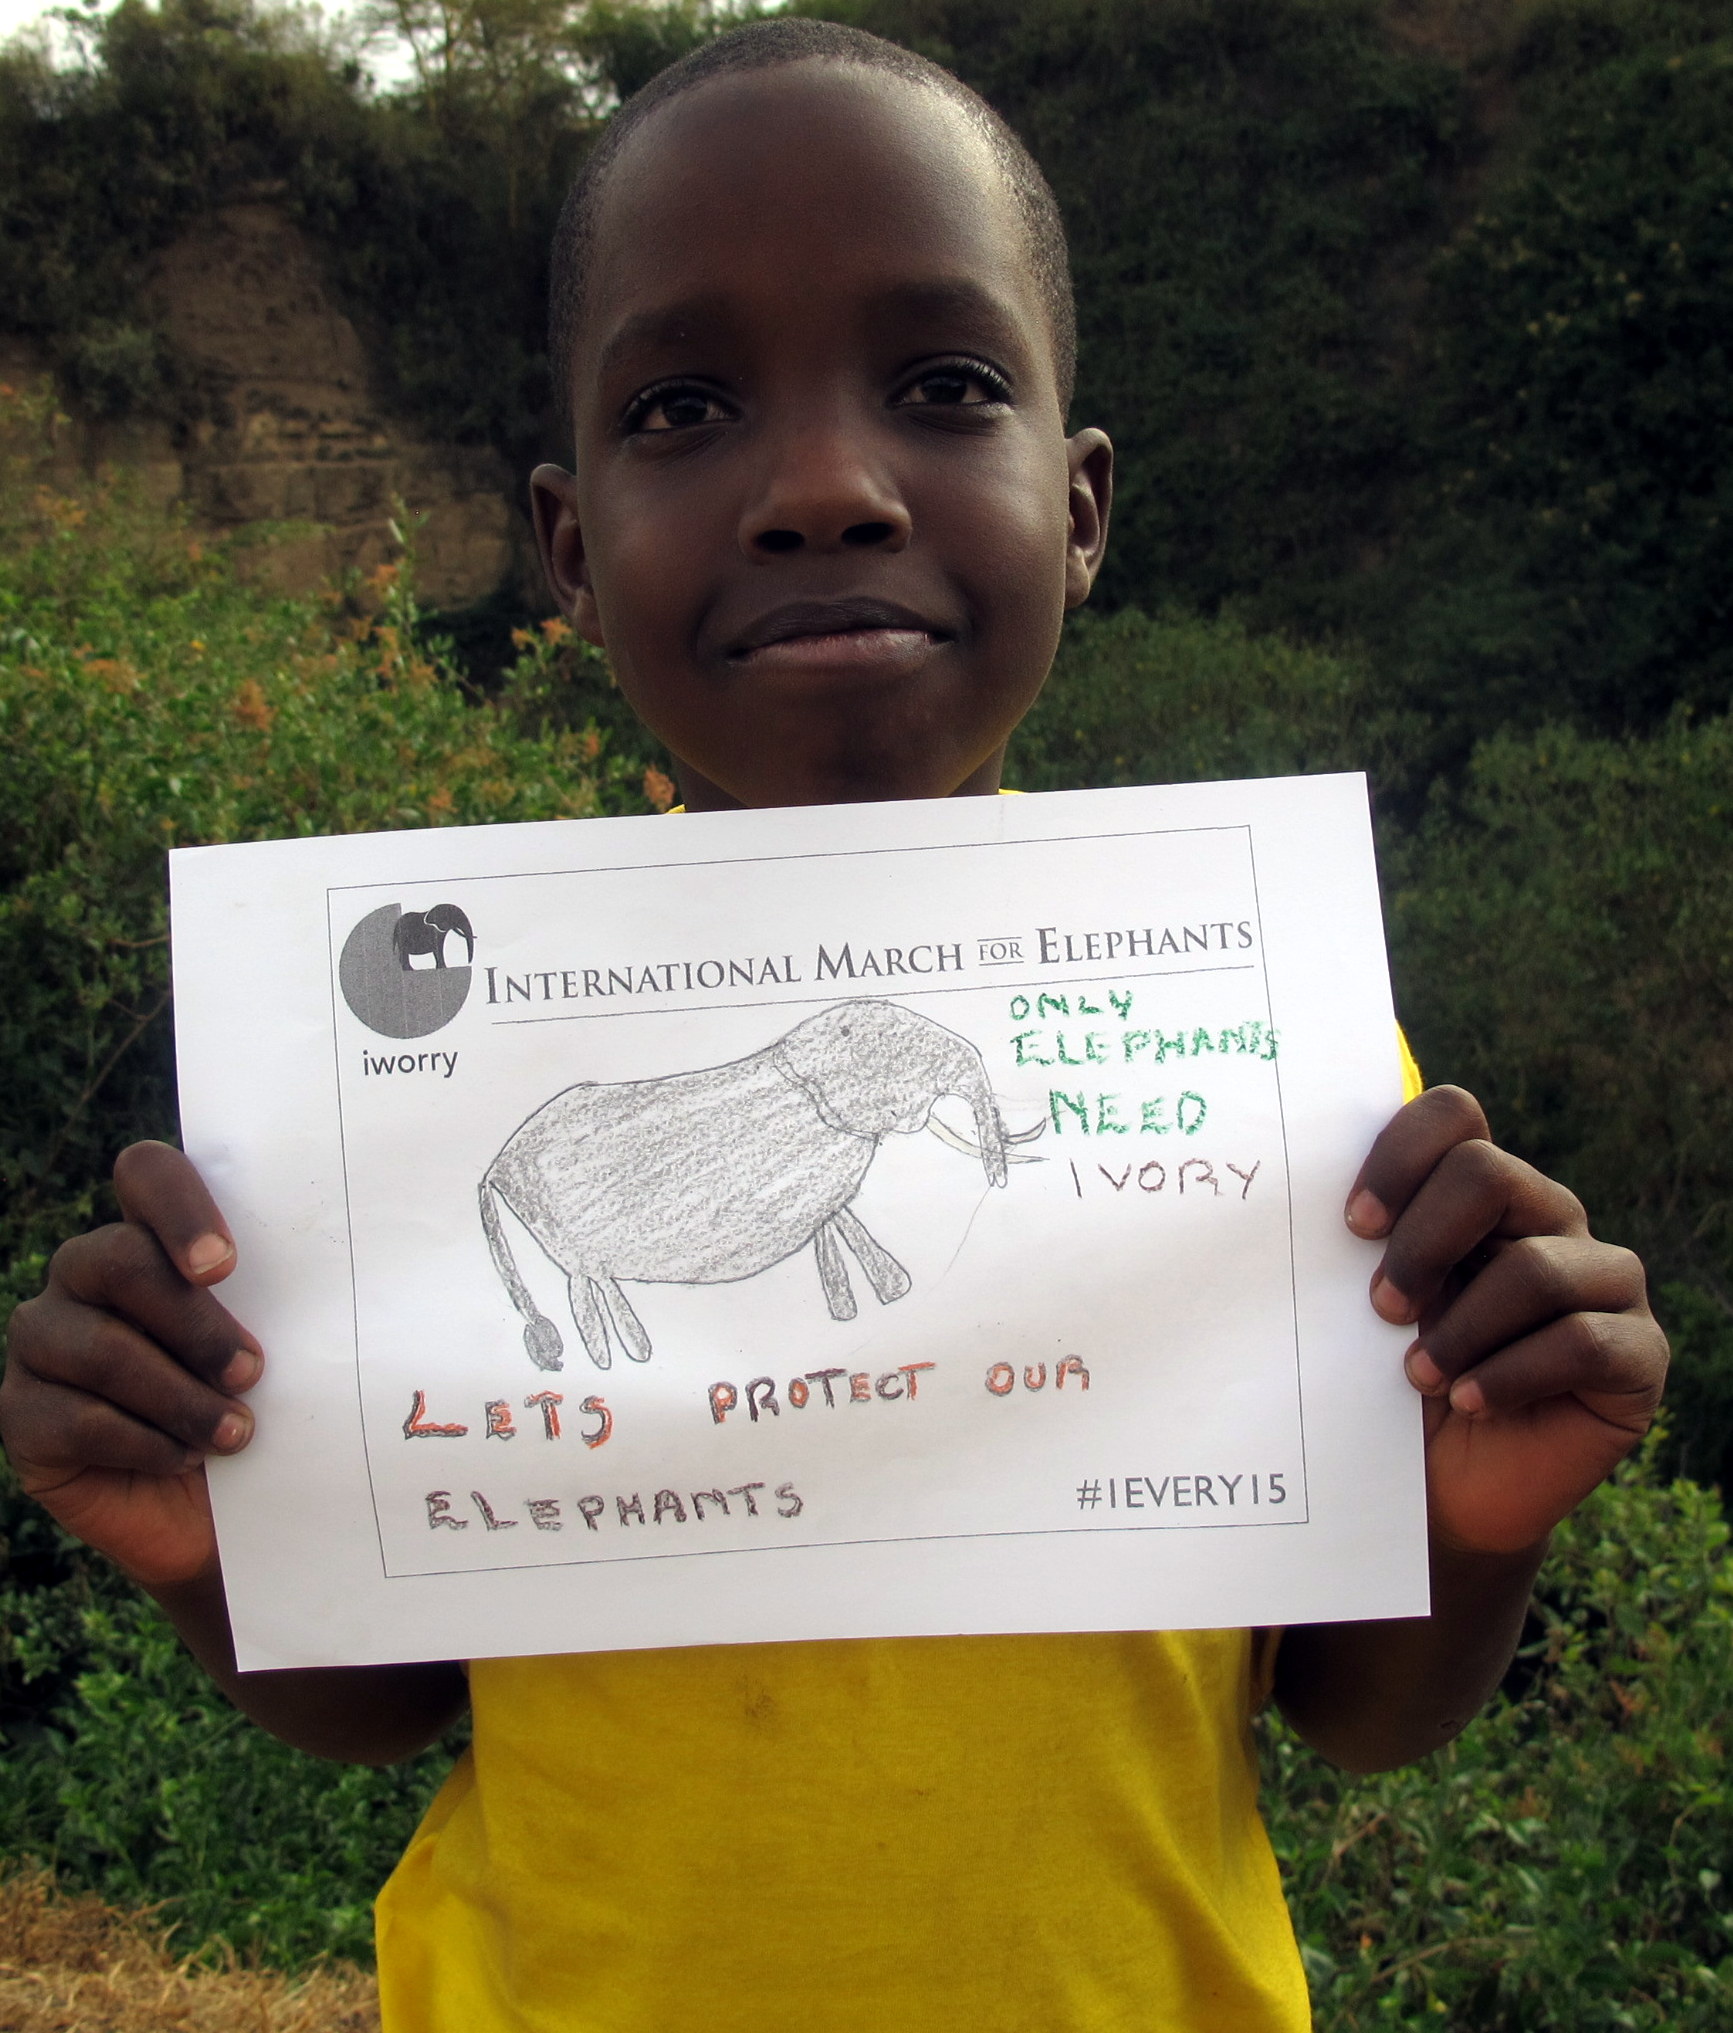 INTERNATIONAL MARCH FOR ELEPHANTS
iworry
ONLY
ELEPHANTS
NEED
IVORY
LETS PROTECT OUR
ELEPHANTS
#1EVERY15